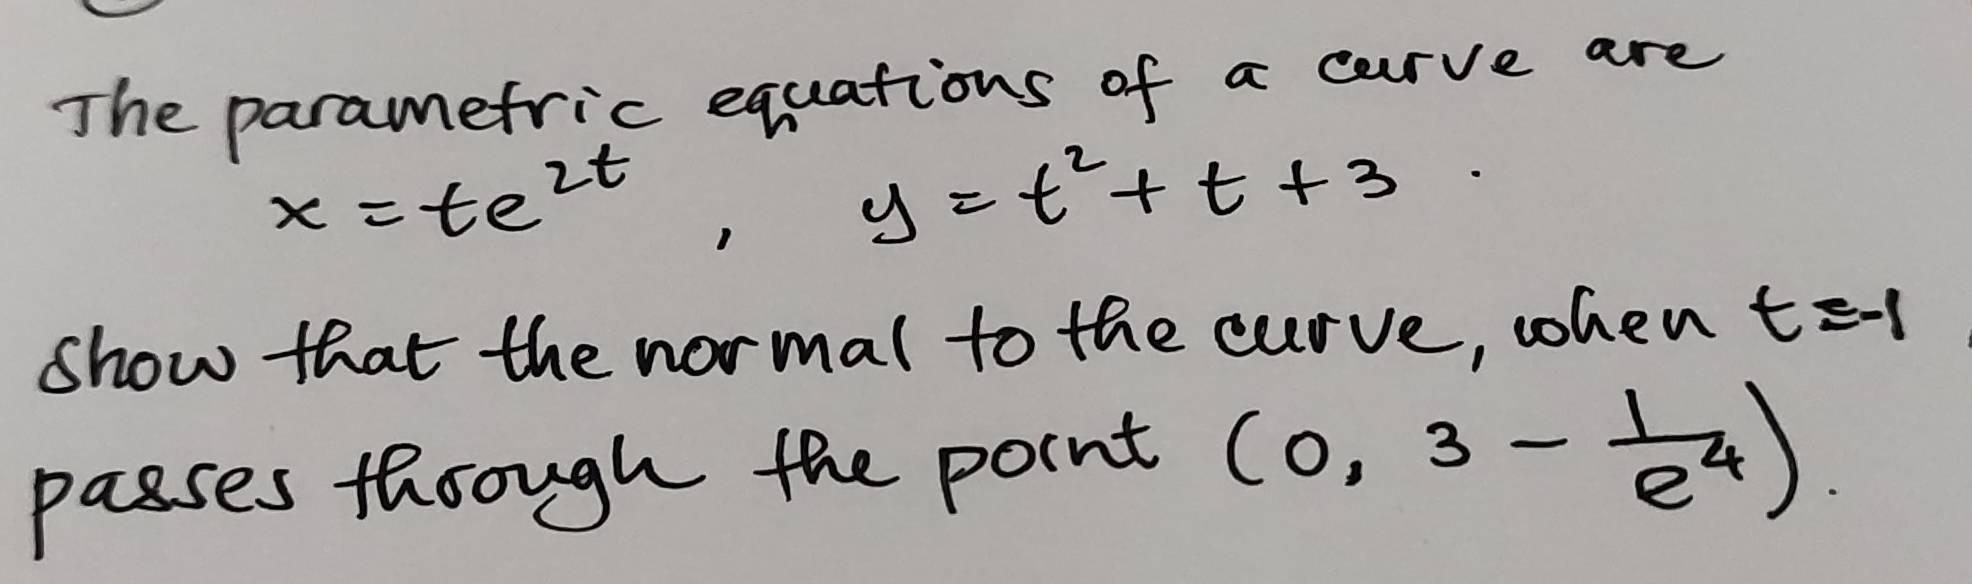 The parametric equations of a curve are
x = te^{2t} , y = t^2 + t + 3 .
Show that the normal to the curve, when t = -1,
passes through the point (0, 3 - \frac{1}{e^4}).